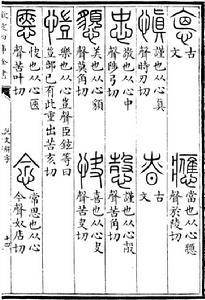 悳古
文
應當也从心䧹
聲於陵切
愼謹也从心真
聲時刃切
昚古
文
忠敬也从心中
聲陟弓切
愨謹也从心㱿
聲苦角切
㦝美也从心䫉
聲莫角切
快喜也从心夬
聲苦夬切
愷樂也从心豈聲臣鉉等曰
豈部已有此重出苦亥切
㥦快也从心匧
聲苦叶切
念常思也从心
今聲奴店切
欽定四庫全書
說文解字